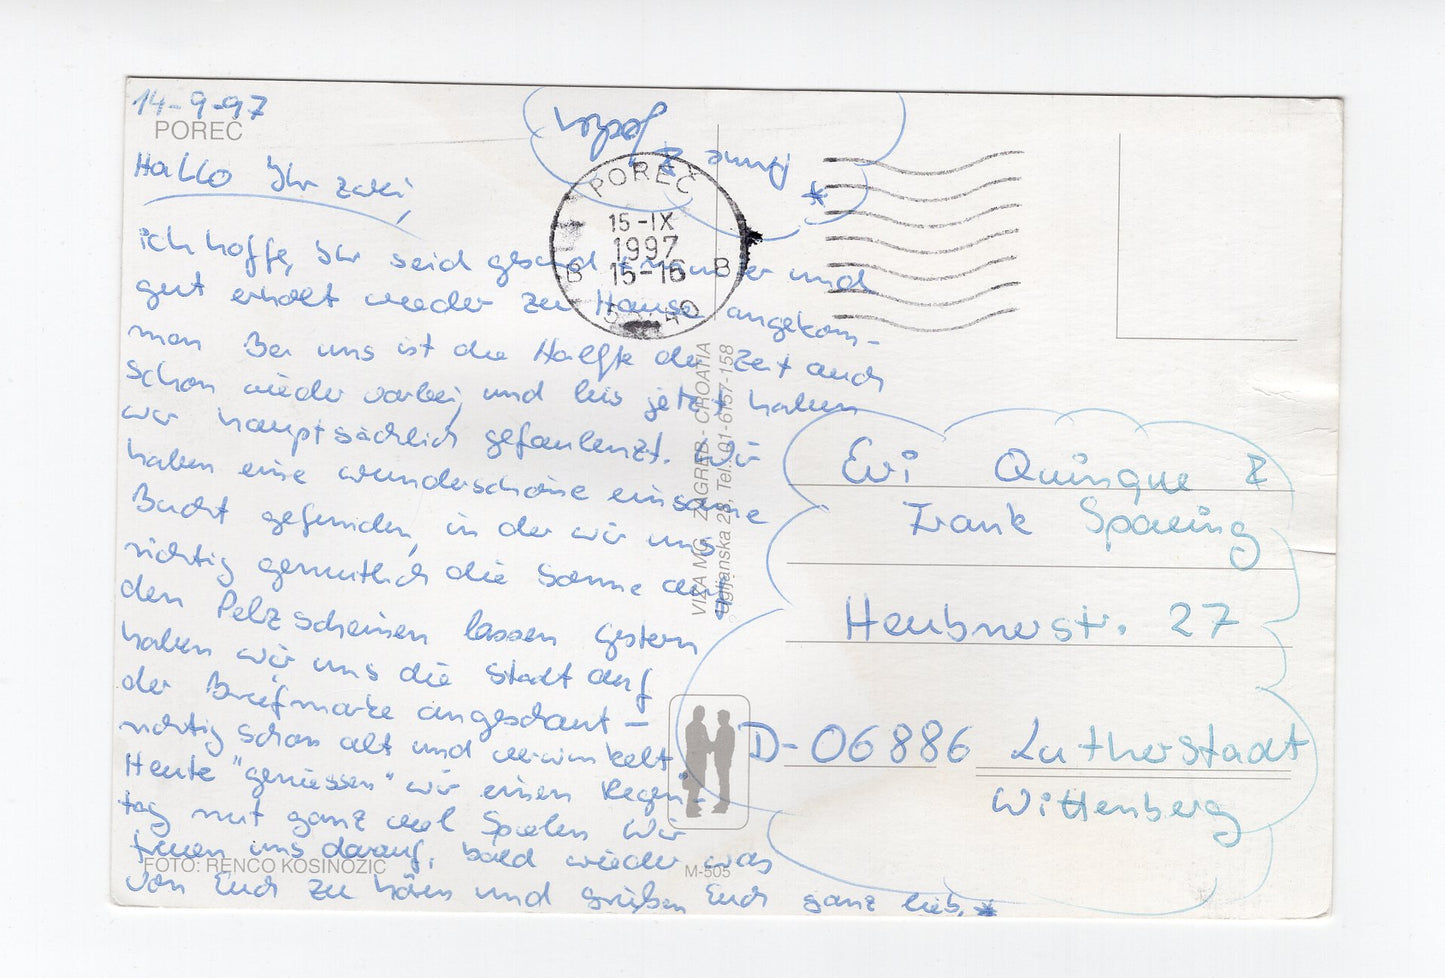 14-9-97
POREČ
Hallo Ihr zwei,
ich hoffe, Ihr seid gesund + munter und
gut erholt wieder zu Hause angekom-
men Bei uns ist die Hälfte der Zeit auch
schon wieder vorbei, und bis jetzt haben
wir hauptsächlich gefaulenzt. Wir
haben eine wunderschöne einsame
Bucht gefunden, in der wir uns
richtig gemütlich die Sonne auf
den Pelz scheinen lassen Gestern
haben wir uns die Stadt auf
der Briefmarke angeschaut –
richtig schön alt und verwinkelt
Heute "geniessen" wir einen Regen-
tag mit ganz viel Spielen Wir
freuen uns darauf, bald wieder was
von Euch zu hören und grüßen Euch ganz lieb. *
* &
Jochen
POREČ
15-IX
1997
15-16
B B
VIZA MG. ZAGREB - CROATIA
Ugljanska 28, Tel.: 01-6157-158
Evi Quinque &
Frank Sparing
Heubnerstr. 27
D-06886 Lutherstadt
Wittenberg
FOTO: RENCO KOSINOŽIĆ
M-505